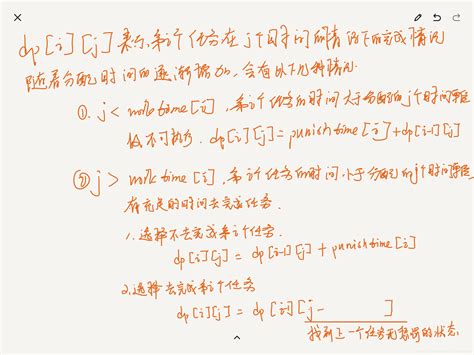 dp[i][j]表示,第i个任务在j个时间的情况下的完成情况
随着分配时间的逐渐增加,会有以下几种情况.
①. j< work time[i],第i个任务的时间大于分配的j个时间单位
做不可执行. dp[i][j]=punish time[i]+dp[i-1][j]
② j > work time[i],第i个任务的时间小于分配的j个时间单位,
有充足的时间去完成任务.
1.选择不去完成第i个任务.
dp[i][j] = dp[i-1][j] + punish time[i]
2.选择去完成第i个任务
dp[i][j] = dp[i-1][j- ]
找到上一个任务无惩罚的状态.